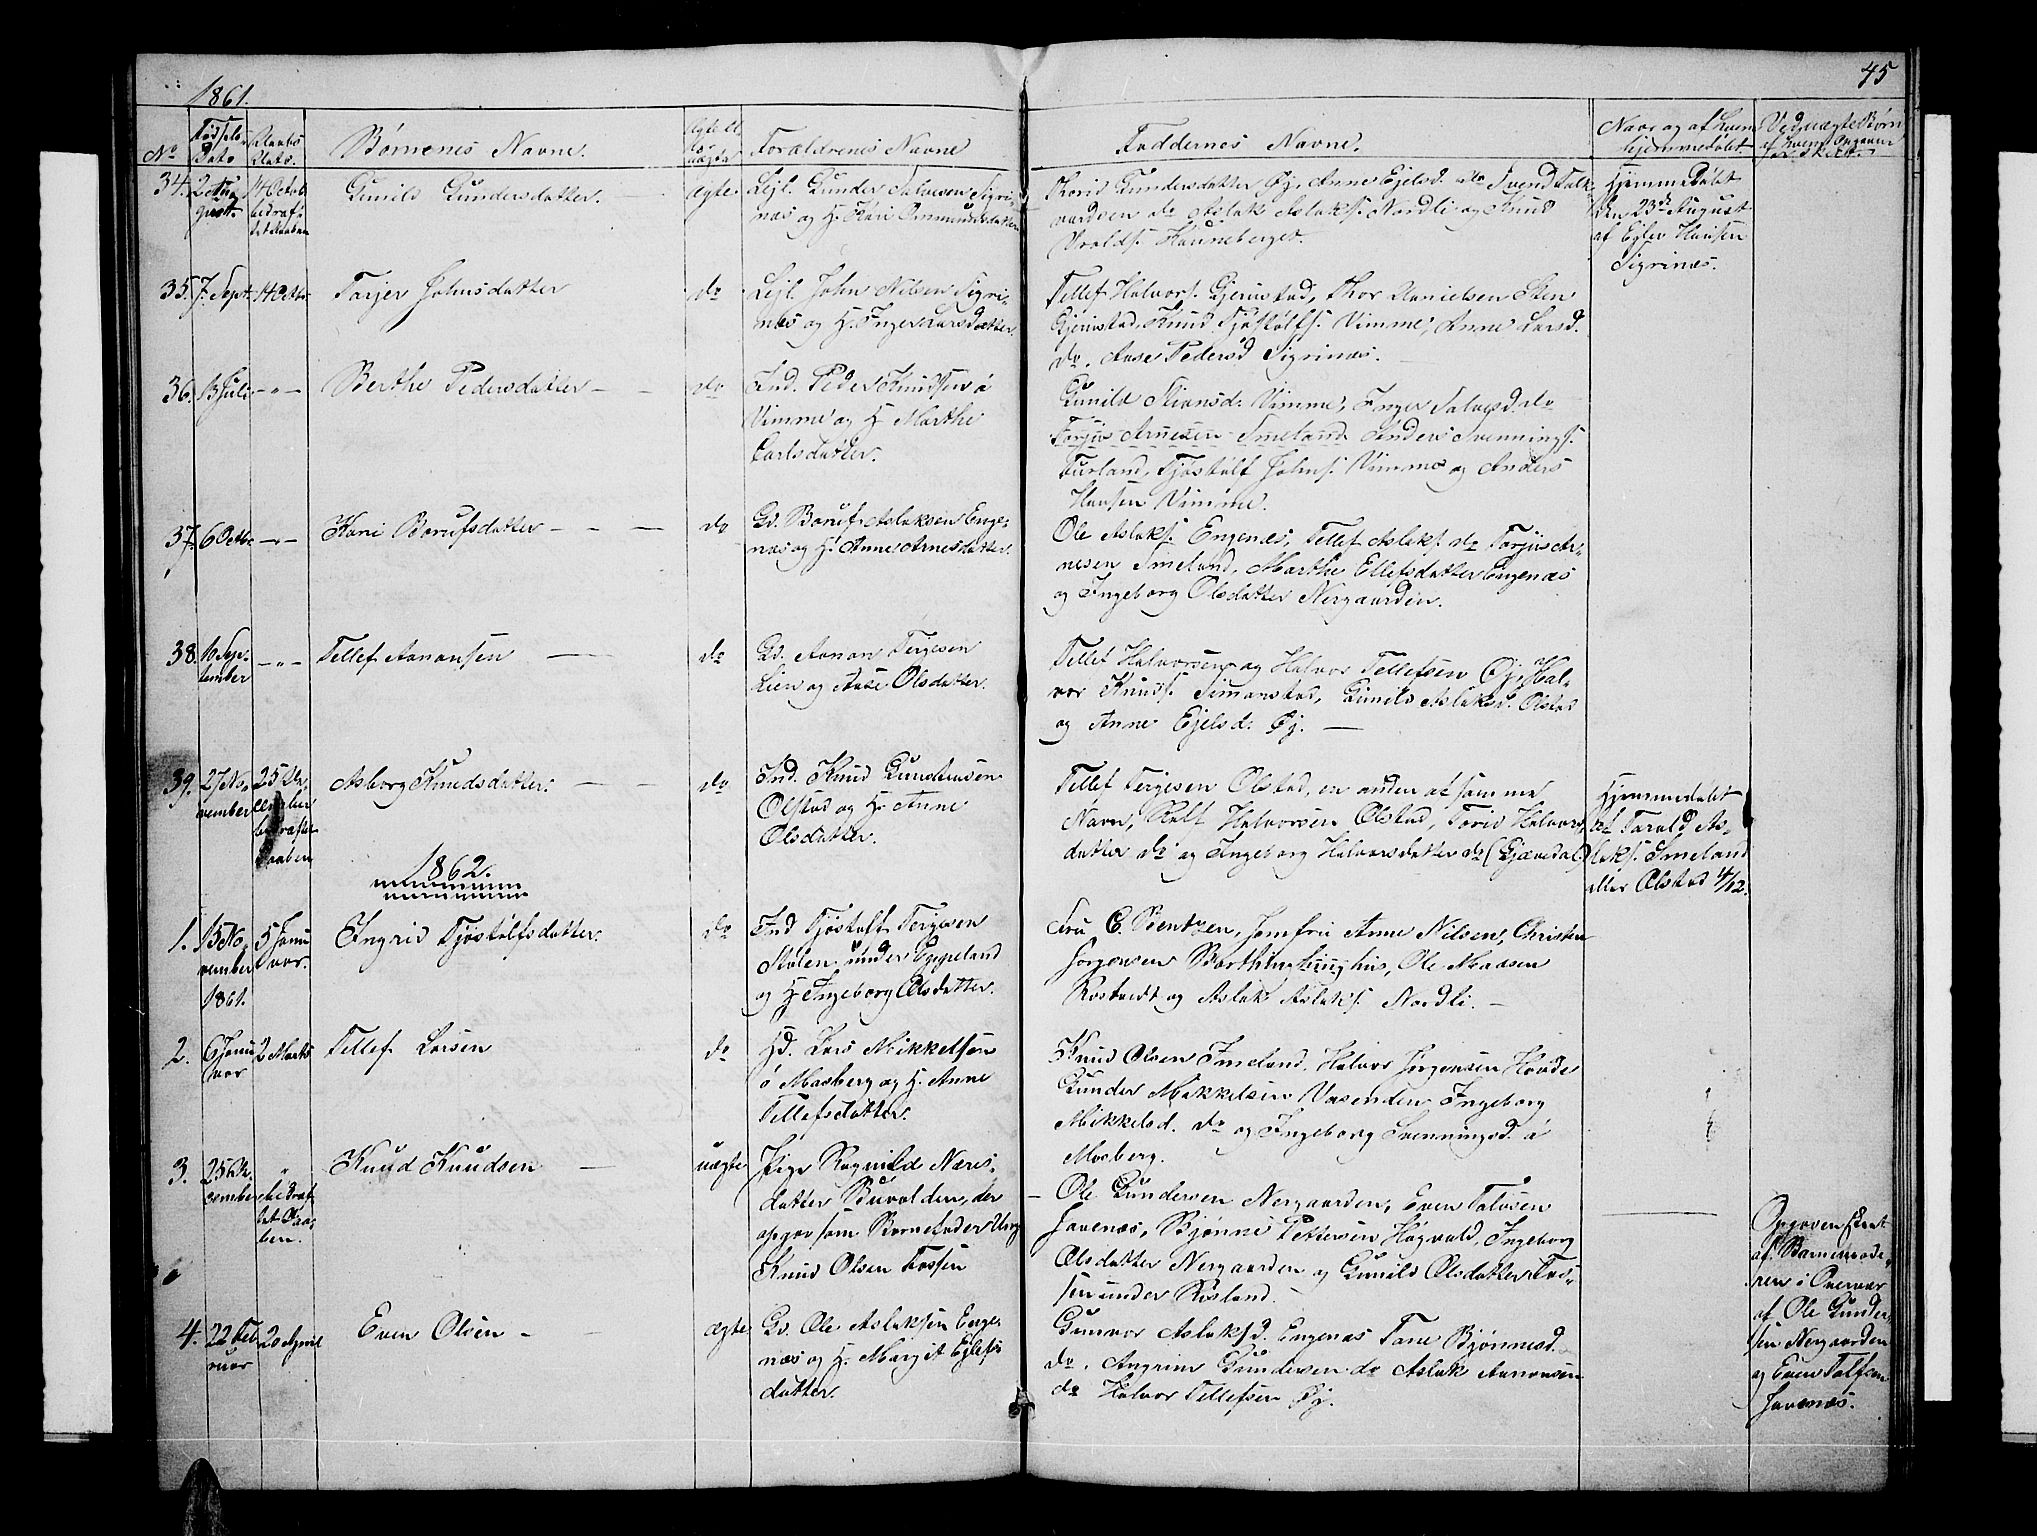 1861.
45
No
Fødsels
Dato
Daabs
Dato.
Børnenes Navne.
Ægte el.
uægte
Forældrenes Navne
Faddernes Navne.
Naar og af hvem
hjemmedøbt.
Ved uægte Børn
af hvem Opgaven
er skeet.
34. 2 Au-
gust.
14 Octob.
bekræf-
tet Daaben
Gunild Gundersdatter.
ægte
Lejl. Gunder Talvesen Sigri-
næs og H. Kari Omundsdatter
Thorid Gundersdatter Øj. Anne Ejelsd. do Svend Talk-
vordsen do Aslak Aslaks. Nordli og Knud
Vroldss. Hauneberget.
Hjemmedøbt
den 23de August
af Ejlev Hansen
Sigrinæs.
35. 7. Sept. 14 Octbr
Torjer Johnsdatter
do
Lejl. John Nilsen Sigri-
næs og H. Inger Larsdatter.
Tellef Halvors. Gjerustad, Thor Danielsen Sten
Gjerustad, Knud Tjøstolfs. Vimme, Anne Larsd.
do. Aase Pedersd Sigrinæs.
36. 13 Juli — „ —
Berthe Pedersdatter —
do
Ind. Peder Knudsen á
Vimme og H. Marthe
Carlsdatter.
Gunild Stiansd. Vimme, Inger Talvesd. do
Torjus Arnesen Smeland Anders Svennings.
Furland, Tjøstolf Johns. Vimme og Anders
Hansen Vimme.
37. 6 Octbr — „ —
Kari Borufsdatter —
do
Gd. Boruf Aslaksen Enge-
næs og H. Anne Arnesdatter.
Ole Aslaks. Engenæs, Tellef Aslaks. do Torjus Ar-
nesen Smeland, Marthe Ellefsdatter Engenæs
og Ingeborg Olsdatter Nergaarden.
38. 10 Sep-
tember — „ —
Tellef Aanonsen —
do
Gd. Aanon Tergesen
Lien og Aase Olsdatter.
Tellef Halvorsen og Halvor Tellefsen Øj, Hal-
vor Knuds. Simonstad, Gunild Aslaksd. Olstad
og Anne Ejelsd. Øj. —
39. 27 No-
vember
25 De-
cember
bekræftet
Daaben
Asborg Knudsdatter. —
do
Ind. Knud Gundersen
Olstad og H. Anne
Olsdatter.
Tellef Tergesen Olstad, en anden af samme
Navn, Rolf Halvorsen Olstad, Torid Halvors-
datter do og Ingeborg Halvorsdatter do (Gjævedal)
Hjemmedøbt
af Tarald As-
laks. Smeland
eller Olstad 4/12.
1862.
1. 15 No-
vember
1861.
5 Janu
var.
Ingrid Tjøstolfsdatter.
do
Ind Tjøstolf Tergesen
Stølen under Eppeland
og H. Ingeborg Olsdatter.
Fru C. Bentzen, Jomfru Anne Nilsen, Christen
Jørgensen Børthinghuughus, Ole Madsen
Rostvedt og Aslak Aslaks. Nordli. —
2. 6 Janu
var
2 Marts
Tellef Larsen
do
Hd. Lars Mikkelsen
á Mosberg og H. Anne
Tellefsdatter.
Knud Olsen Smeland. Halvor Jørgensen Hovde
Gunder Mikkelsen Vasenden Ingeborg
Mikkelsd. do og Ingeborg Svenningsd. á
Mosberg.
3. 25 De-
cember
„
bekræf-
tet Daa-
ben.
Knud Knudsen —
uægte
Pige Ragnild Næris-
datter Buvolden, der
opgav som Barnefader Ung.
Knud Olsen Fossen
— Ole Gundersen Nergaarden, Even Talvsen
Javenæs, Bjønne Pettersen Høgvold, Ingeborg
Olsdatter Nergaarden og Gunild Olsdatter Fos-
sen under Risland.
Opgaven skeet
af Barnemode-
ren i Overvær
af Ole Gunder-
sen Nergaarden
og Even Talfsen
Javenæs.
4. 22 Feb
ruar
20 April
Even Olsen —
ægte
Gd. Ole Aslaksen Enge-
næs og H. Margit Ejlefs-
datter.
Gunvor Aslaksd. Engenæs Tone Bjønnesd.
do. Angrim Gundersen do Aslak Aanonsen
do Halvor Tellefsen Øj.